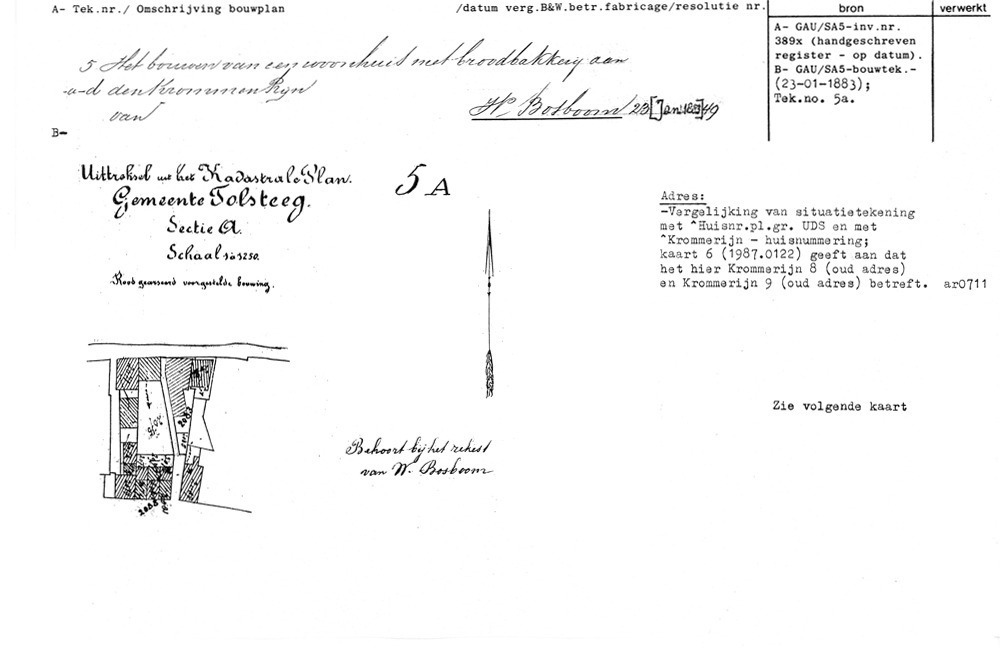 A- Tek.nr./ Omschrijving bouwplan
/datum verg.B&W.betr.fabricage/resolutie nr.
bron
verwerkt
5 Het bouwen van een woonhuis met broodbakkerij aan
-a-d den Krommen Rijn
van
W. Bosboom 23 [Jan 1883] 49
A- GAU/SA5-inv.nr.
389x (handgeschreven
register - op datum).
B- GAU/SA5-bouwtek.-
(23-01-1883);
Tek.no. 5a.
B-
Uittreksel uit het Kadastrale Plan.
Gemeente Tolsteeg.
Sectie A.
Schaal 1 à 1250.
Rood gearceerd voorgestelde bouwing.
5 A
Adres:
-Vergelijking van situatietekening
met ^Huisnr.pl.gr. UDS en met
^Krommerijn - huisnummering;
kaart 6 (1987.0122) geeft aan dat
het hier Krommerijn 8 (oud adres)
en Krommerijn 9 (oud adres) betreft. ar0711
Zie volgende kaart
2087
2088
Behoort bij het rekest
van W. Bosboom